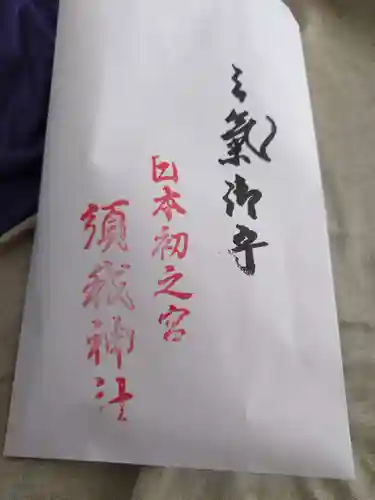 氣御守
日本初之宮
須我神社